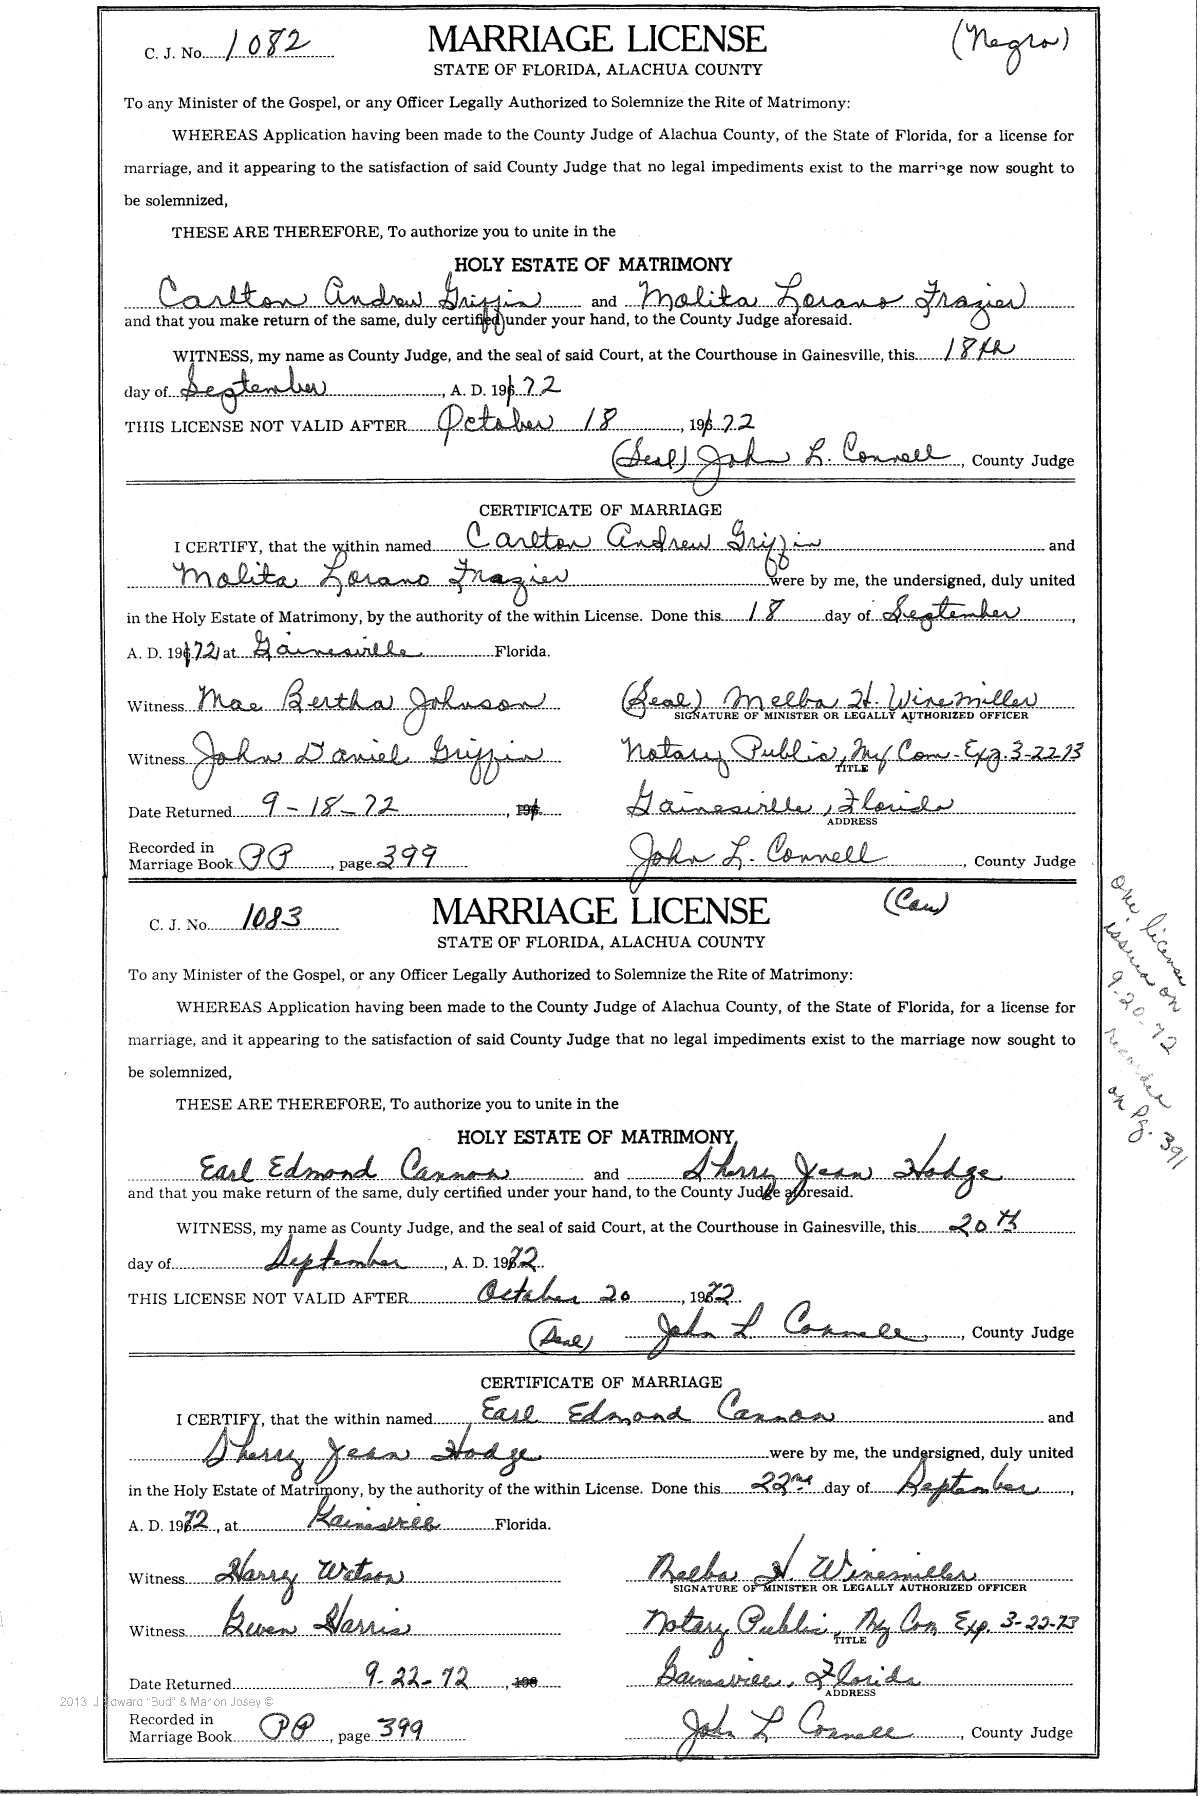 C. J. No. 1082
MARRIAGE LICENSE
(Negro)
STATE OF FLORIDA, ALACHUA COUNTY
To any Minister of the Gospel, or any Officer Legally Authorized to Solemnize the Rite of Matrimony:
WHEREAS Application having been made to the County Judge of Alachua County, of the State of Florida, for a license for
marriage, and it appearing to the satisfaction of said County Judge that no legal impediments exist to the marriage now sought to
be solemnized,
THESE ARE THEREFORE, To authorize you to unite in the
HOLY ESTATE OF MATRIMONY
Carlton Andrew Griffin and Molita Lorano Frazier
and that you make return of the same, duly certified under your hand, to the County Judge aforesaid.
WITNESS, my name as County Judge, and the seal of said Court, at the Courthouse in Gainesville, this 18th
day of September, A. D. 1972
THIS LICENSE NOT VALID AFTER October 18, 1972
(Seal) John L. Connell, County Judge
CERTIFICATE OF MARRIAGE
I CERTIFY, that the within named Carlton Andrew Griffin and
Molita Lorano Frazier were by me, the undersigned, duly united
in the Holy Estate of Matrimony, by the authority of the within License. Done this 18 day of September,
A. D. 1972, at Gainesville Florida.
Witness Mae Bertha Johnson (Seal) Melba H. Winemiller
SIGNATURE OF MINISTER OR LEGALLY AUTHORIZED OFFICER
Witness John Daniel Griffin Notary Public, My Com. Exp. 3-22-73
TITLE
Date Returned 9-18-72, 196 Gainesville, Florida
ADDRESS
Recorded in
Marriage Book PP, page 399 John L. Connell, County Judge
C. J. No. 1083
MARRIAGE LICENSE
(Cau)
STATE OF FLORIDA, ALACHUA COUNTY
To any Minister of the Gospel, or any Officer Legally Authorized to Solemnize the Rite of Matrimony:
WHEREAS Application having been made to the County Judge of Alachua County, of the State of Florida, for a license for
marriage, and it appearing to the satisfaction of said County Judge that no legal impediments exist to the marriage now sought to
be solemnized,
THESE ARE THEREFORE, To authorize you to unite in the
HOLY ESTATE OF MATRIMONY
Earl Edmond Cannon and Sherry Jean Hodge
and that you make return of the same, duly certified under your hand, to the County Judge aforesaid.
WITNESS, my name as County Judge, and the seal of said Court, at the Courthouse in Gainesville, this 20th
day of September, A. D. 1972
THIS LICENSE NOT VALID AFTER October 20, 1972
(Seal) John L Connell, County Judge
CERTIFICATE OF MARRIAGE
I CERTIFY, that the within named Earl Edmond Cannon and
Sherry Jean Hodge were by me, the undersigned, duly united
in the Holy Estate of Matrimony, by the authority of the within License. Done this 22nd day of September,
A. D. 1972, at Gainesville Florida.
Witness Harry Watson Melba H. Winemiller
SIGNATURE OF MINISTER OR LEGALLY AUTHORIZED OFFICER
Witness Gwen Harris Notary Public, My Com Exp. 3-22-73
TITLE
Date Returned 9-22-72, 196 Gainesville, Florida
ADDRESS
2013 J Edward "Bud" & Marion Josey ©
Recorded in
Marriage Book PP, page 399 John L Connell, County Judge
one license
issued on
9-20-72
recorded
on Pg. 391